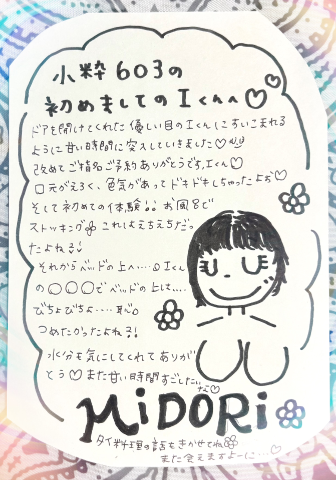 小粋603の
初めましてのIくんへ♡
ドアを開けてくれた優しい目のIくんにすいこまれる
ように甘い時間に突入していきました♡
改めてご指名ご予約ありがとうです、Iくん♡
口元がえろく、色気があってドキドキしちゃったよぉ♡
そして初めての体験!! お風呂で
ストッキング これはえちえちだ。
たよねる!
それからベッドの上へ....。Iくん
の〇〇〇でベッドの上は....
びちょびちょ....恥。
つめたかったよね?!
水分を気にしてくれてありが
とう♡また甘い時間すごしたい
な♡
MiDORi
タイ料理の話もきかせてね
また会えますよーに...♡